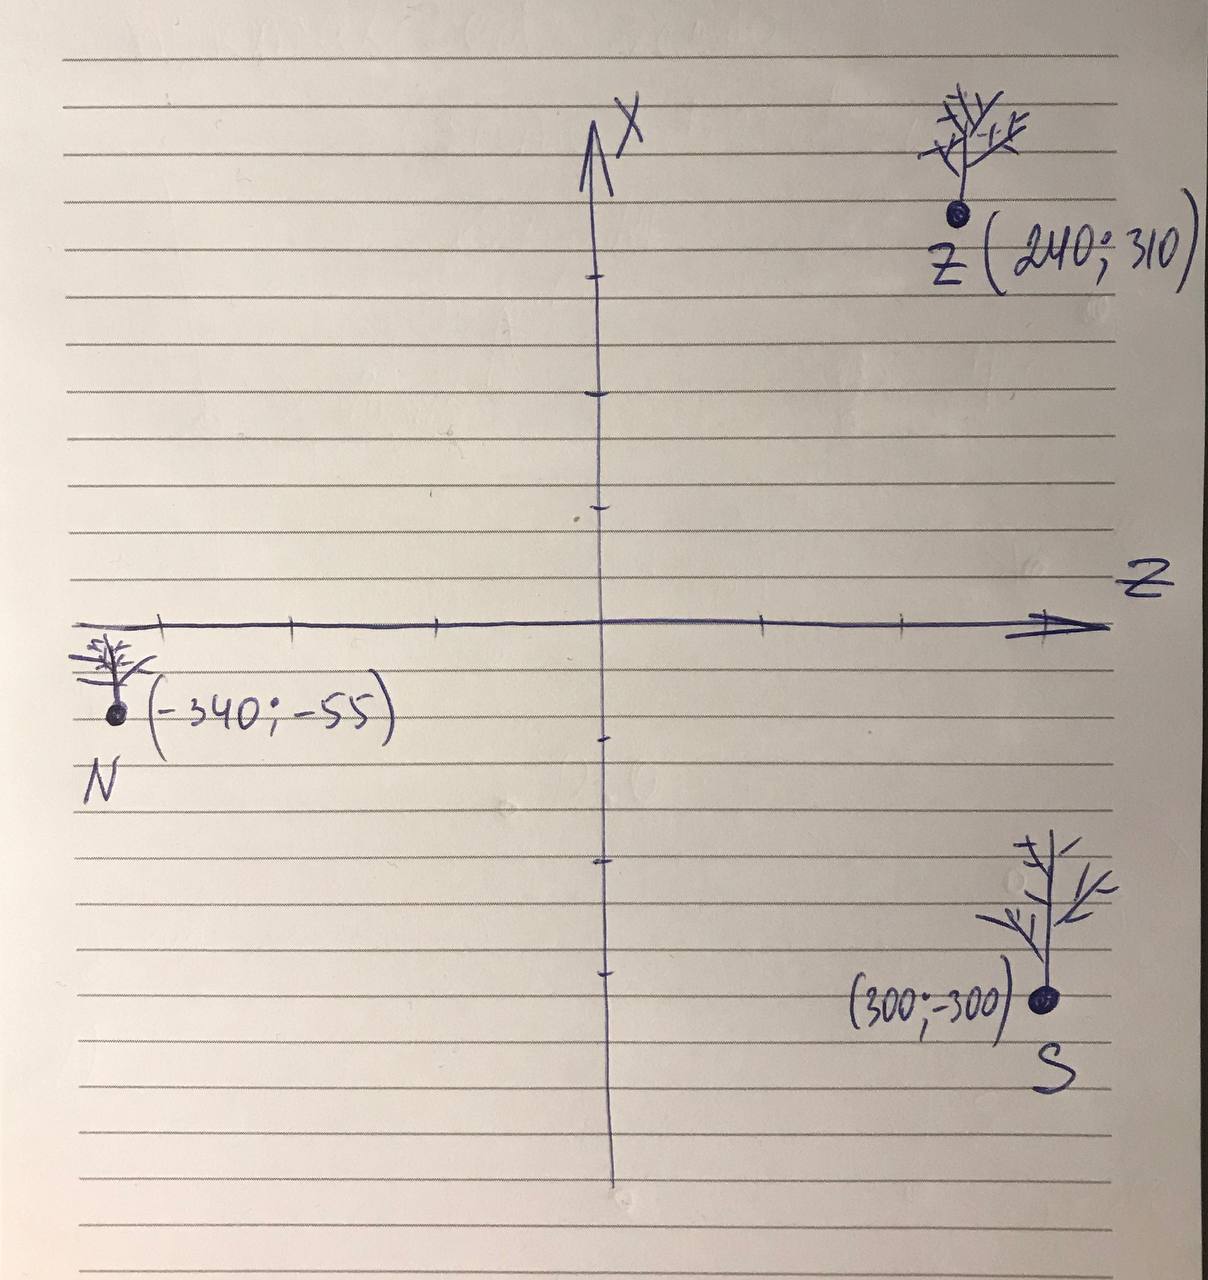 X
Z (240; 310)
Z
(-340; -55)
N
(300; -300)
S